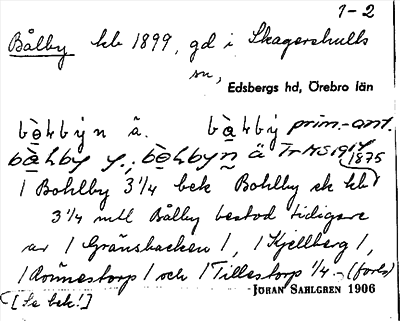 1-2
Bålby kb 1899, gd i Skagershults
sn,
Edsbergs hd, Örebro län
bòhbyn ä. bàhby prim.-ant.
bàhby y., bòhbyn ä TrMS 1914
1875
1 Bohlby 3 1/4 bek Bohlby sk kb
3 1/4 mtl Bålby bestod tidigare
av / Gränsbacken /, / Kjellberg /,
/ Rönnestorp / och / Tillestorp 1/4.- (forts)
[Se bek!]
JOHAN SAHLGREN 1906